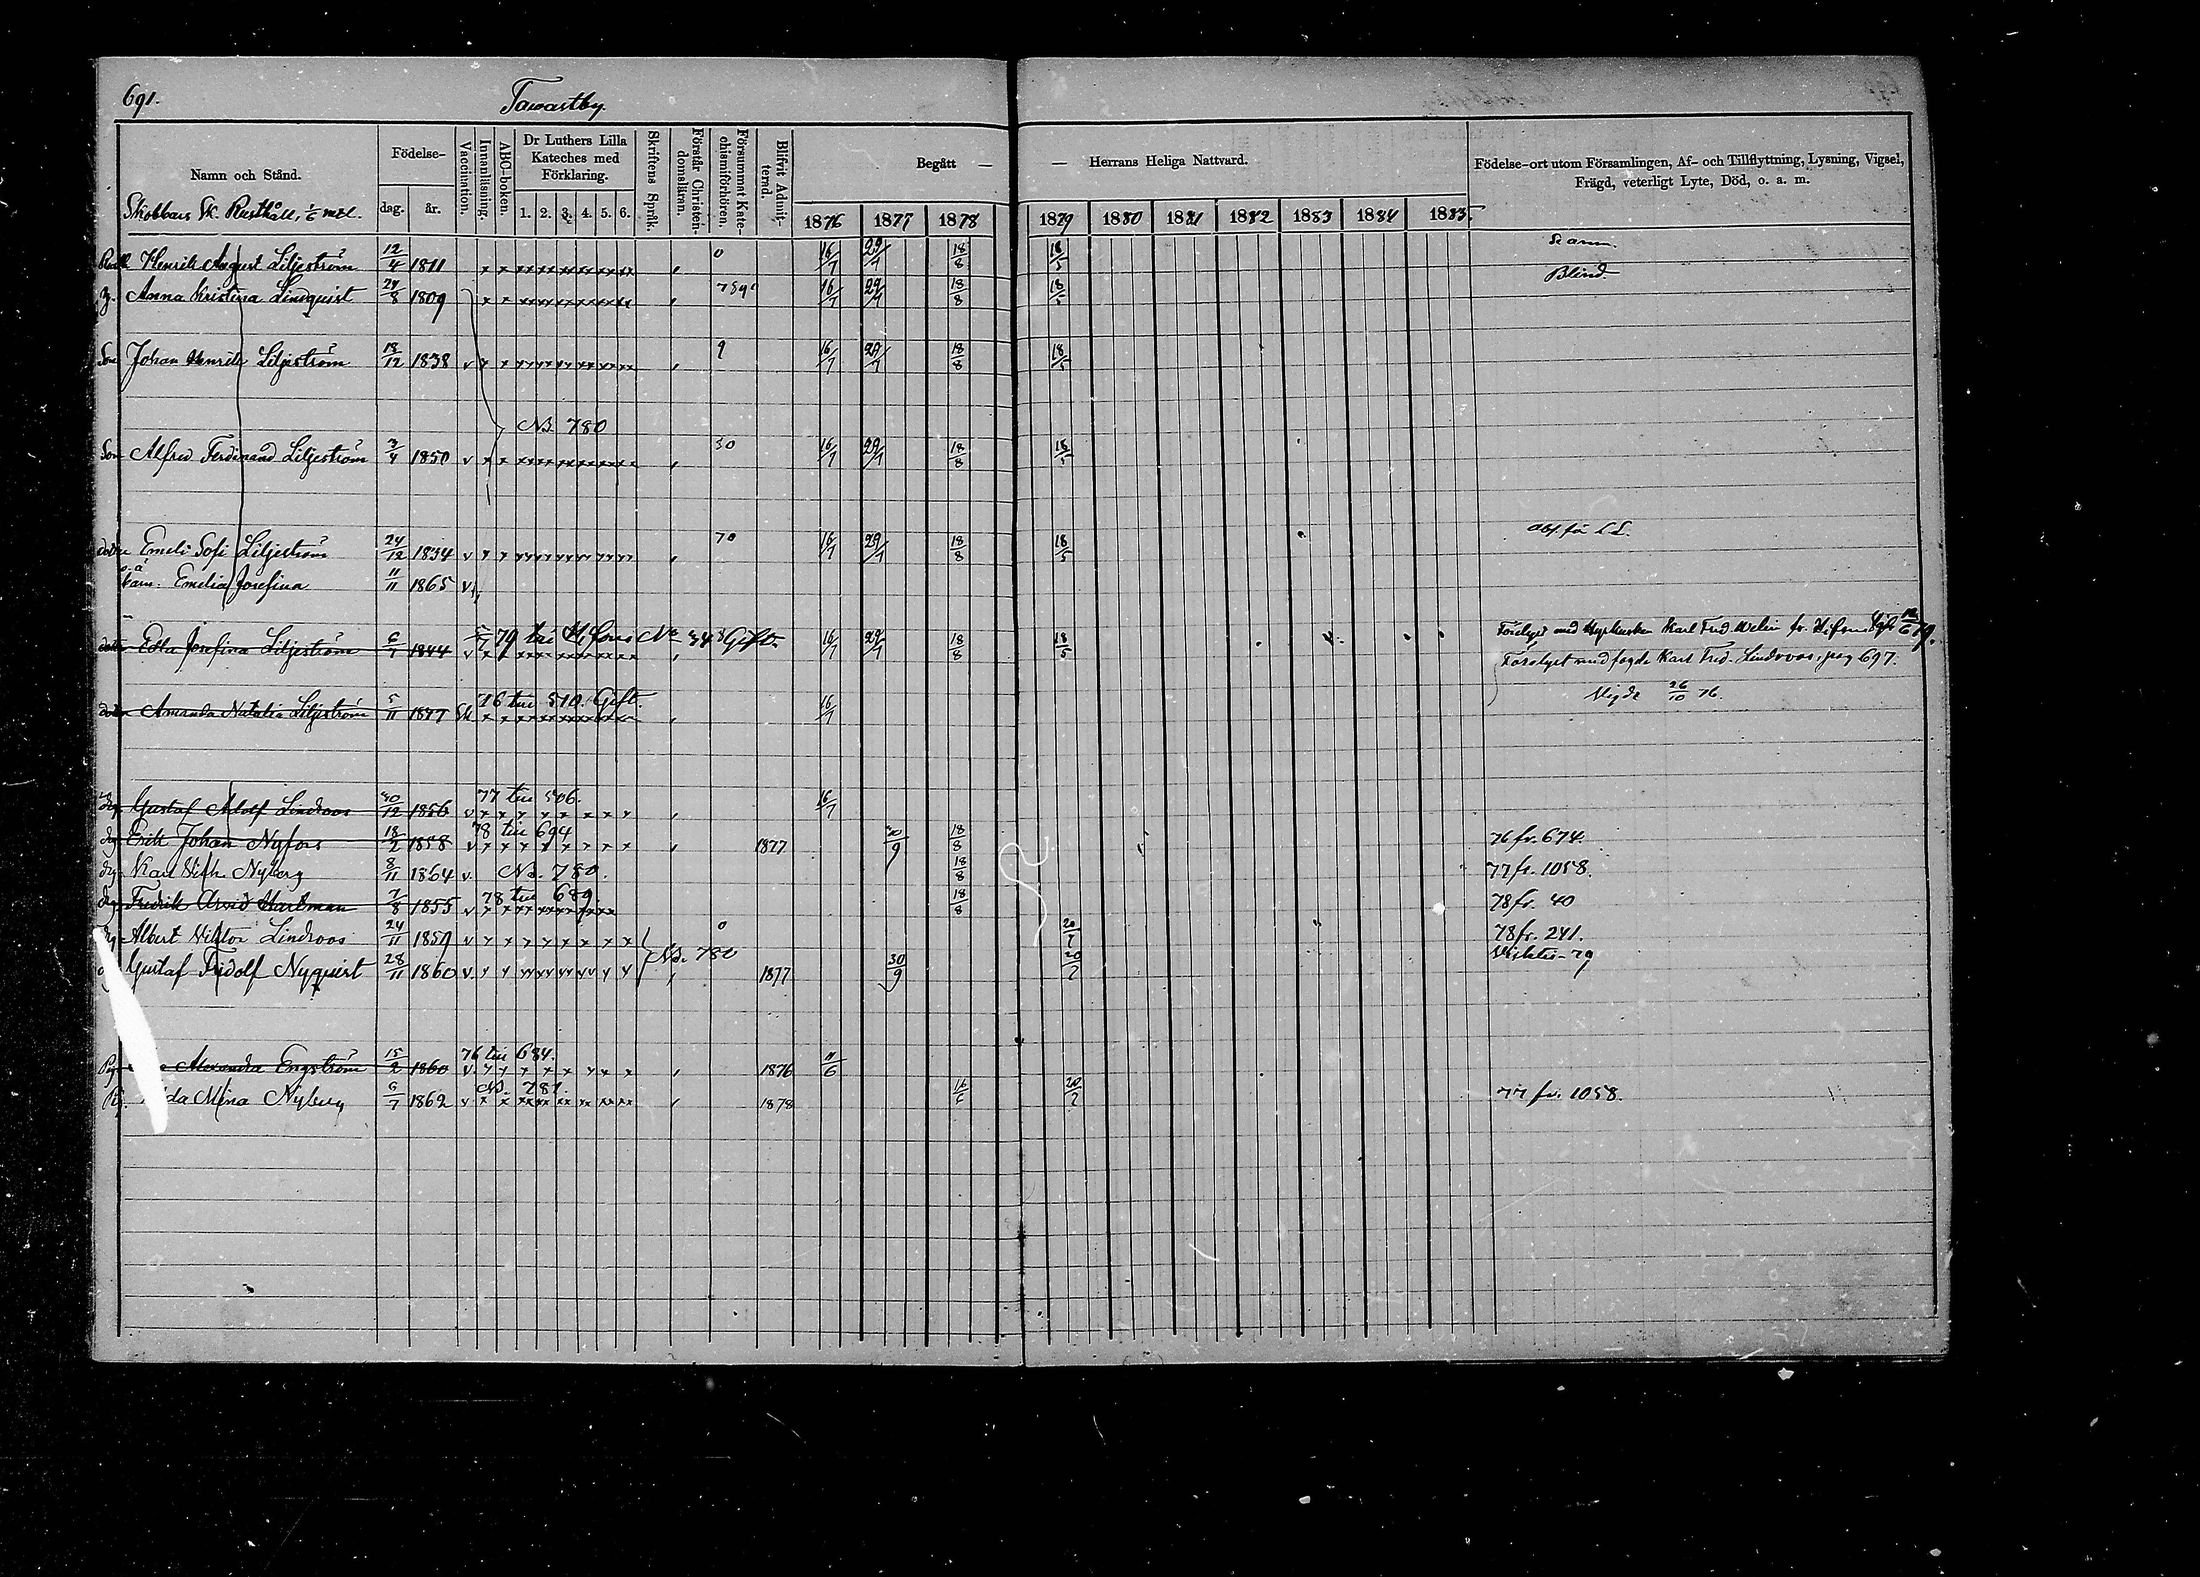 691. Tawastby.
Namn och Stånd.
Födelse-
dag. år.
Vaccination.
Innanläsning.
ABC-boken.
Dr Luthers Lilla Kateches med Förklaring.
1. 2. 3. 4. 5. 6.
Skriftens Språk.
Förstår Christendomsläran.
Försummat Katechismiförhören.
Blifvit Admitterad.
Begått — — Herrans Heliga Nattvard.
1876 1877 1878 1879 1880 1881 1882 1883 1884 1885
Födelse-ort utom Församlingen, Af- och Tillflyttning, Lysning, Vigsel,
Frägd, veterligt Lyte, Död, o. a. m.
Skobbars Sk. Rusthåll, 1/6 mtl.
Henrik August Liljeström 12/4 1811 0 16/7 29/7 18/8 18/5
Anna Kristina Lindquist 24/8 1809 16/7 29/7 18/8 18/5 Blind
Son Johan Henrik Liljeström 18/12 1838 v 16/7 29/7 18/8 18/5
Nb. 780
Son Alfred Ferdinand Liljeström 3/4 1850 v 16/7 29/7 18/8 18/5
Emeli Sofi Liljeström 24/12 1834 v 70 16/7 29/7 18/8 18/5
o. ä barn. Emelia Josefina 11/11 1865 v
79 till H:fors No 348 Gift.
Edla Josefina Liljeström 6/7 1844 v 16/7 29/7 18/8 18/5 Karl Fred
Karl Fred. Lindroos, pag 697.
76 till 510. Gift.
Amanda Natalia Liljeström 5/11 1847 16/7 Vigde 26/10 76.
77 till 506.
Drg Gustaf Adolf Lindroos 30/12 1856 v 16/7
78 till 694
drg Erik Johan Nyfors 18/2 1858 v 1877 30/9 18/8 76 fr. 674.
drg Karl Vilh Nyberg 8/11 1864 v. Nb. 780. 18/8 77 fr. 1058.
78 till 689.
drg Fredrik Arvid Hartman 7/8 1855 v 18/8 78 fr. 40
Albert Viktor Lindroos 24/11 1859 v 0 20/7 78 fr. 241.
Nb. 780
Gustaf Fridolf Nyquist 28/11 1860 v. 1877 30/9 20/7
76 till 684.
Alexandra Engström 15/2 1860 v. 1876 11/6
Nb. 781.
Mina Nyberg 6/7 1862 v 1878 16/6 20/7 77 fr. 1058.